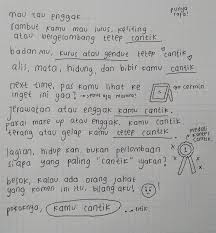 mau tau enggak
punya rafa!
rambut kamu mau lurus, keliting
atau bergelombang tetep cantik
badanmu, kurus atau gendut tetep cantik
alis, mata, hidung, dan bibir kamu cantik
next time, pas kamu lihat ke
inget ini ya!
cermin
jerawatan atau enggak kamu cantik.
pakai make up atau enggak, kamu cantik
terang atau gelap kamu tetep cantik
medali
lagian, hidup kan bukan perlombaan
siapa yang paling "cantik" yakan?
besok, kalau ada orang jahat
yang komen ini itu, bilang aku!
pokoknya, kamu cantik ..titik.